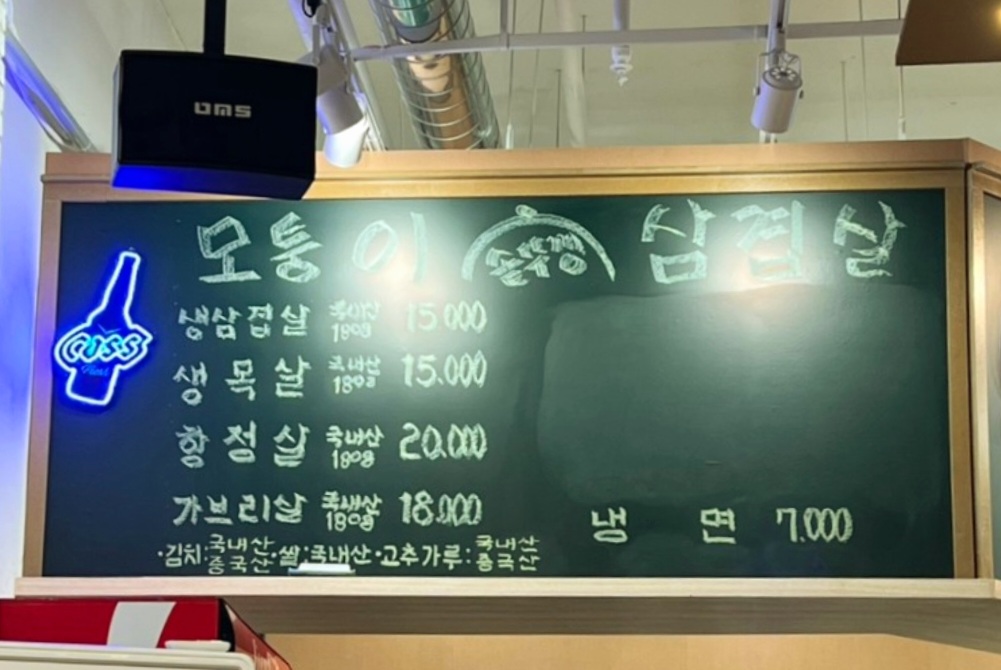 BMS
모퉁이 솥뚜껑 삼겹살
생삼겹살 국내산 180g 15.000
CASS
Fresh
생목살 국내산 180g 15.000
항정살 국내산 180g 20.000
가브리살 국내산 180g 18.000
냉 면 7.000
·김치:국내산 중국산 ·쌀:국내산 ·고추가루: 국내산 중국산